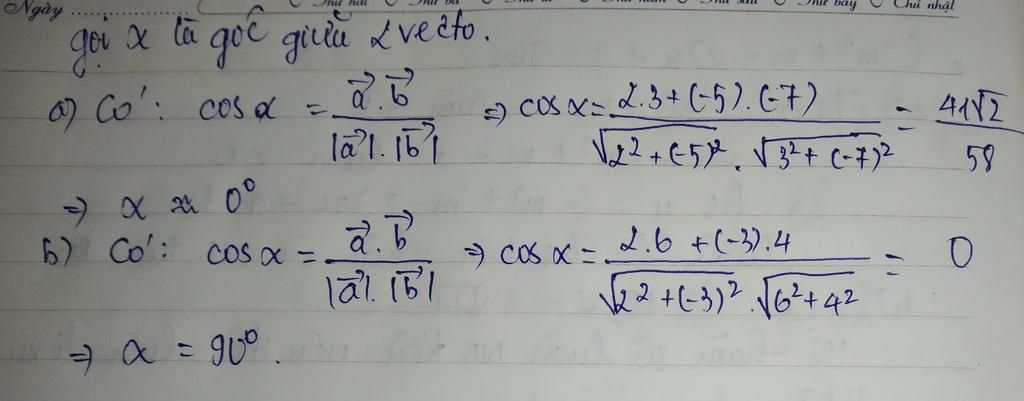 Ngày
Chủ nhật
gọi x là góc giữa 2 vectơ.
a) Có: cos α = (a⃗ . b⃗)/(|a⃗| . |b⃗|) ⇒ cos x = (2.3 + (-5).(-7))/(√(2² + (-5)²) . √(3² + (-7)²)) = 41√2/58
⇒ α ≈ 0°
b) Có: cos α = (a⃗ . b⃗)/(|a⃗| . |b⃗|) ⇒ cos α = (2.6 + (-3).4)/(√(2² + (-3)²) . √(6² + 4²)) = 0
⇒ α = 90°.